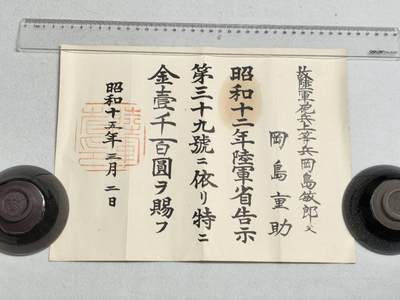 故陸軍砲兵上等兵岡島敏郎父
岡島重助
昭和十二年陸軍省告示
第三十九號ニ依リ特ニ
金壹千百圓ヲ賜フ
昭和十五年三月二日